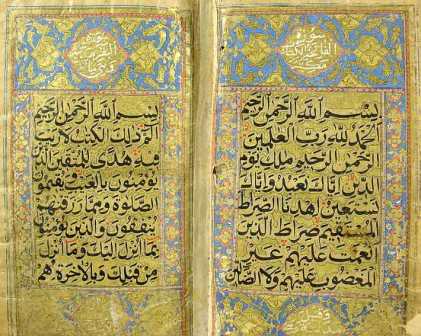 سورة
بِسْمِ اللهِ الرَّحْمٰنِ الرَّحِيْمِ
الْحَمْدُ لِلّٰهِ رَبِّ الْعٰلَمِيْنَ
الرَّحْمٰنِ الرَّحِيْمِ مٰلِكِ يَوْمِ
الدِّيْنِ اِيَّاكَ نَعْبُدُ وَاِيَّاكَ
نَسْتَعِيْنُ اِهْدِنَا الصِّرَاطَ
الْمُسْتَقِيْمَ صِرَاطَ الَّذِيْنَ
اَنْعَمْتَ عَلَيْهِمْ غَيْرِ
الْمَغْضُوْبِ عَلَيْهِمْ وَلَا الضَّالِّيْنَ
بِسْمِ اللهِ الرَّحْمٰنِ الرَّحِيْمِ
الٓمّٓ ذٰلِكَ الْكِتٰبُ لَا رَيْبَ
فِيْهِ هُدًى لِلْمُتَّقِيْنَ الَّذِيْنَ
يُؤْمِنُوْنَ بِالْغَيْبِ وَيُقِيْمُوْنَ
الصَّلٰوةَ وَمِمَّا رَزَقْنٰهُمْ
يُنْفِقُوْنَ وَالَّذِيْنَ يُؤْمِنُوْنَ
بِمَا اُنْزِلَ اِلَيْكَ وَمَا اُنْزِلَ
مِنْ قَبْلِكَ وَبِالْاٰخِرَةِ هُمْ